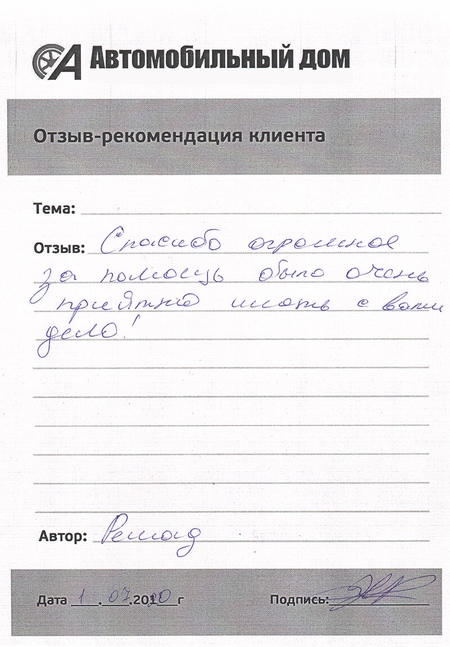 Автомобильный дом
Отзыв-рекомендация клиента
Тема:
Отзыв: Спасибо огромное
за помощь было очень
приятно иметь с вами
дело!
Автор:
Дата 1.07.20 г Подпись: